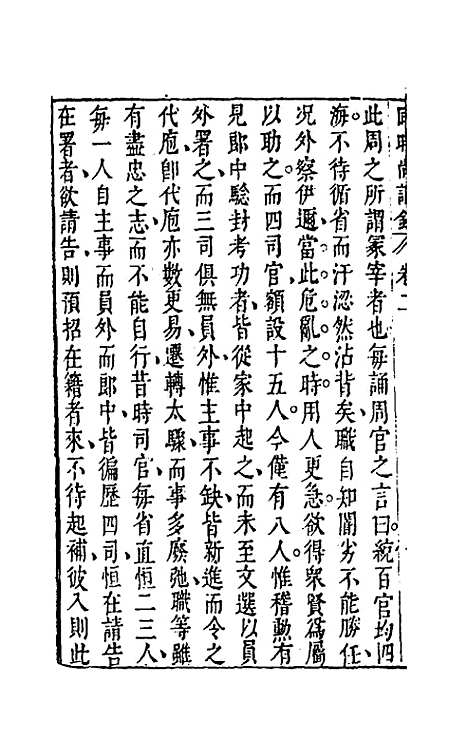 卷二
此周之所謂冢宰者也每誦周官之言曰統百官均四
海不待循省而汗涊然沾背矣職自知闇劣不能勝任
况外察伊邇當此危亂之時用人更急欲得衆賢爲屬
以助之而四司官額設十五人今僅有八人惟稽勲有
見郎中驗封考功者皆從家中起之而未至文選以員
外署之而三司俱無員外惟主事不缺皆新進而令之
代庖卽代庖亦數更易遷轉太驟而事多廢弛職等雖
有盡忠之志而不能自行昔時司官每省直恒二三人
每一人自主事而員外而郎中皆徧歷四司恒在請告
在署者欲請告則預招在籍者來不待起補彼入則此